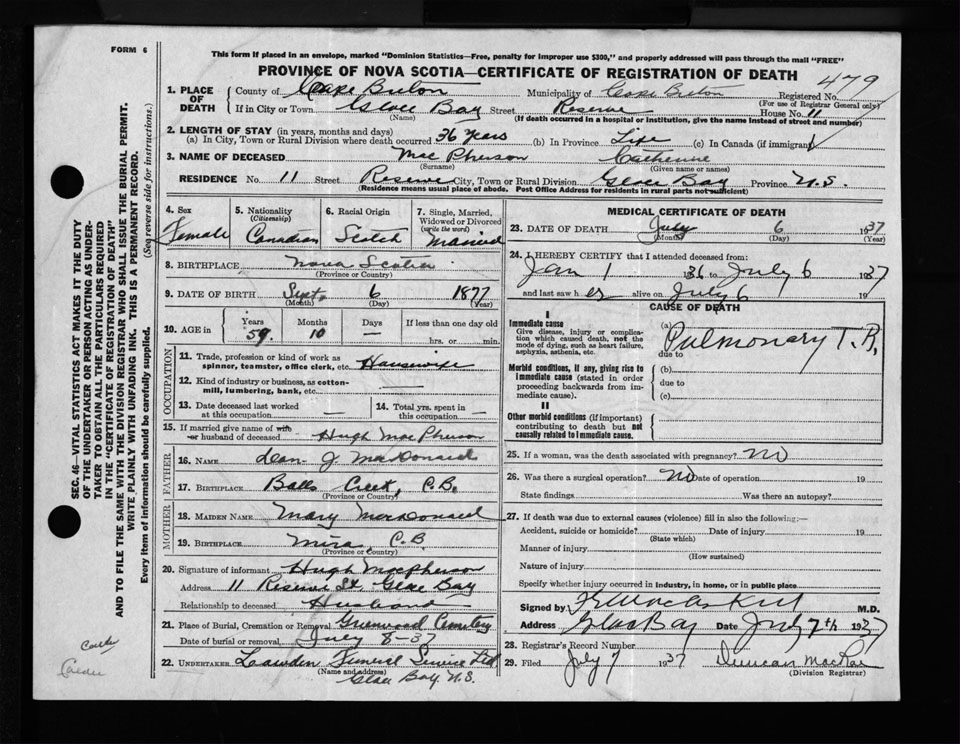 FORM 6
This form if placed in an envelope, marked "Dominion Statistics—Free, penalty for improper use $300," and properly addressed will pass through the mail "FREE"
PROVINCE OF NOVA SCOTIA—CERTIFICATE OF REGISTRATION OF DEATH
479
1. PLACE OF DEATH
County of Cape Breton Municipality of Cape Breton Registered No.
(For use of Registrar General only)
If in City or Town Glace Bay Street Reserve House No. 11
(Name) (If death occurred in a hospital or institution, give the name instead of street and number)
2. LENGTH OF STAY (in years, months and days)
(a) In City, Town or Rural Division where death occurred 36 years (b) In Province Life (c) In Canada (if immigrant)
3. NAME OF DECEASED Mac Pherson Catherine
(Surname) (Given name or names)
RESIDENCE No. 11 Street Reserve City, Town or Rural Division Glace Bay Province N.S.
(Residence means usual place of abode. Post Office Address for residents in rural parts not sufficient)
4. Sex
Female
5. Nationality
(Citizenship)
Canadian
6. Racial Origin
Scotch
7. Single, Married, Widowed or Divorced
(write the word)
Married
8. BIRTHPLACE Nova Scotia
(Province or Country)
9. DATE OF BIRTH Sept. 6 1877
(Month) (Day) (Year)
10. AGE in Years Months Days If less than one day old
59 10 — hrs. or min.
OCCUPATION
11. Trade, profession or kind of work as
spinner, teamster, office clerk, etc. Housewife
12. Kind of industry or business, as cotton-
mill, lumbering, bank, etc. —
13. Date deceased last worked
at this occupation —
14. Total yrs. spent in
this occupation —
15. If married give name of wife
or husband of deceased Hugh MacPherson
FATHER
16. NAME J. MacDonald
17. BIRTHPLACE Balls Creek, C.B.
(Province or Country)
MOTHER
18. MAIDEN NAME Mary MacDonald
19. BIRTHPLACE Mira C.B.
(Province or Country)
20. Signature of informant Hugh Macpherson
Address 11 Reserve St. Glace Bay
Relationship to deceased Husband
21. Place of Burial, Cremation or Removal Greenwood Cemetery
Date of burial or removal July 8-37
22. UNDERTAKER Funeral Service Ltd
(Name and address)
Glace Bay. N.S.
MEDICAL CERTIFICATE OF DEATH
23. DATE OF DEATH July 6 1937
(Month) (Day) (Year)
24. I HEREBY CERTIFY that I attended deceased from:
Jan 1 1936 to July 6 1937
and last saw her alive on July 6 19
CAUSE OF DEATH
I
Immediate cause
Give disease, injury or complication which caused death, not the mode of dying, such as heart failure, asphyxia, asthenia, etc.
(a) Pulmonary T.B.
due to
Morbid conditions, if any, giving rise to immediate cause (stated in order proceeding backwards from immediate cause).
(b)
due to
(c)
II
Other morbid conditions (if important) contributing to death but not causally related to immediate cause.
25. If a woman, was the death associated with pregnancy? No
26. Was there a surgical operation? No Date of operation 19
State findings Was there an autopsy?
27. If death was due to external causes (violence) fill in also the following:—
Accident, suicide or homicide? Date of injury 19
(State which)
Manner of injury
(How sustained)
Nature of injury
Specify whether injury occurred in industry, in home, or in public place
Signed by M.D.
Address Glace Bay Date July 7th 1937
28. Registrar's Record Number
29. Filed July 7 1937 Duncan MacRae
(Division Registrar)
SEC. 46—VITAL STATISTICS ACT MAKES IT THE DUTY
OF THE UNDERTAKER OR PERSON ACTING AS UNDER-
TAKER TO OBTAIN ALL THE PARTICULARS REQUIRED
IN THE "CERTIFICATE OF REGISTRATION OF DEATH"
AND TO FILE THE SAME WITH THE DIVISION REGISTRAR WHO SHALL ISSUE THE BURIAL PERMIT.
WRITE PLAINLY WITH UNFADING INK. THIS IS A PERMANENT RECORD.
Every item of information should be carefully supplied. (See reverse side for instructions.)